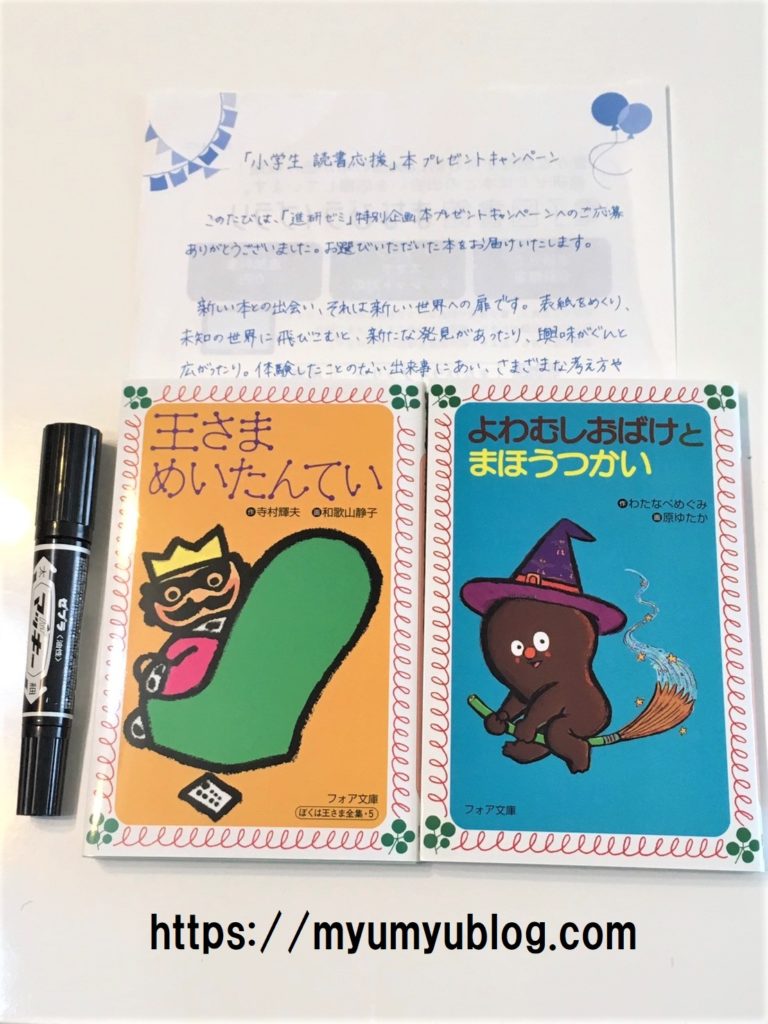 「小学生 読書応援」本プレゼントキャンペーン
このたびは、「進研ゼミ」特別企画本プレゼントキャンペーンへのご応募
ありがとうございました。お選びいただいた本をお届けいたします。
新しい本との出会い、それは新しい世界への扉です。表紙をめくり、
未知の世界に飛びこむと、新たな発見があったり、興味がぐんと
広がったり。体験したことのない出来事にあい、さまざまな考え方や
王さま
めいたんてい
作 寺村輝夫 画 和歌山静子
フォア文庫
ぼくは王さま全集・5
よわむしおばけと
まほうつかい
作 わたなべめぐみ
画 原ゆたか
フォア文庫
太
ゼブラ〈油性〉
マッキー
細
https://myumyublog.com